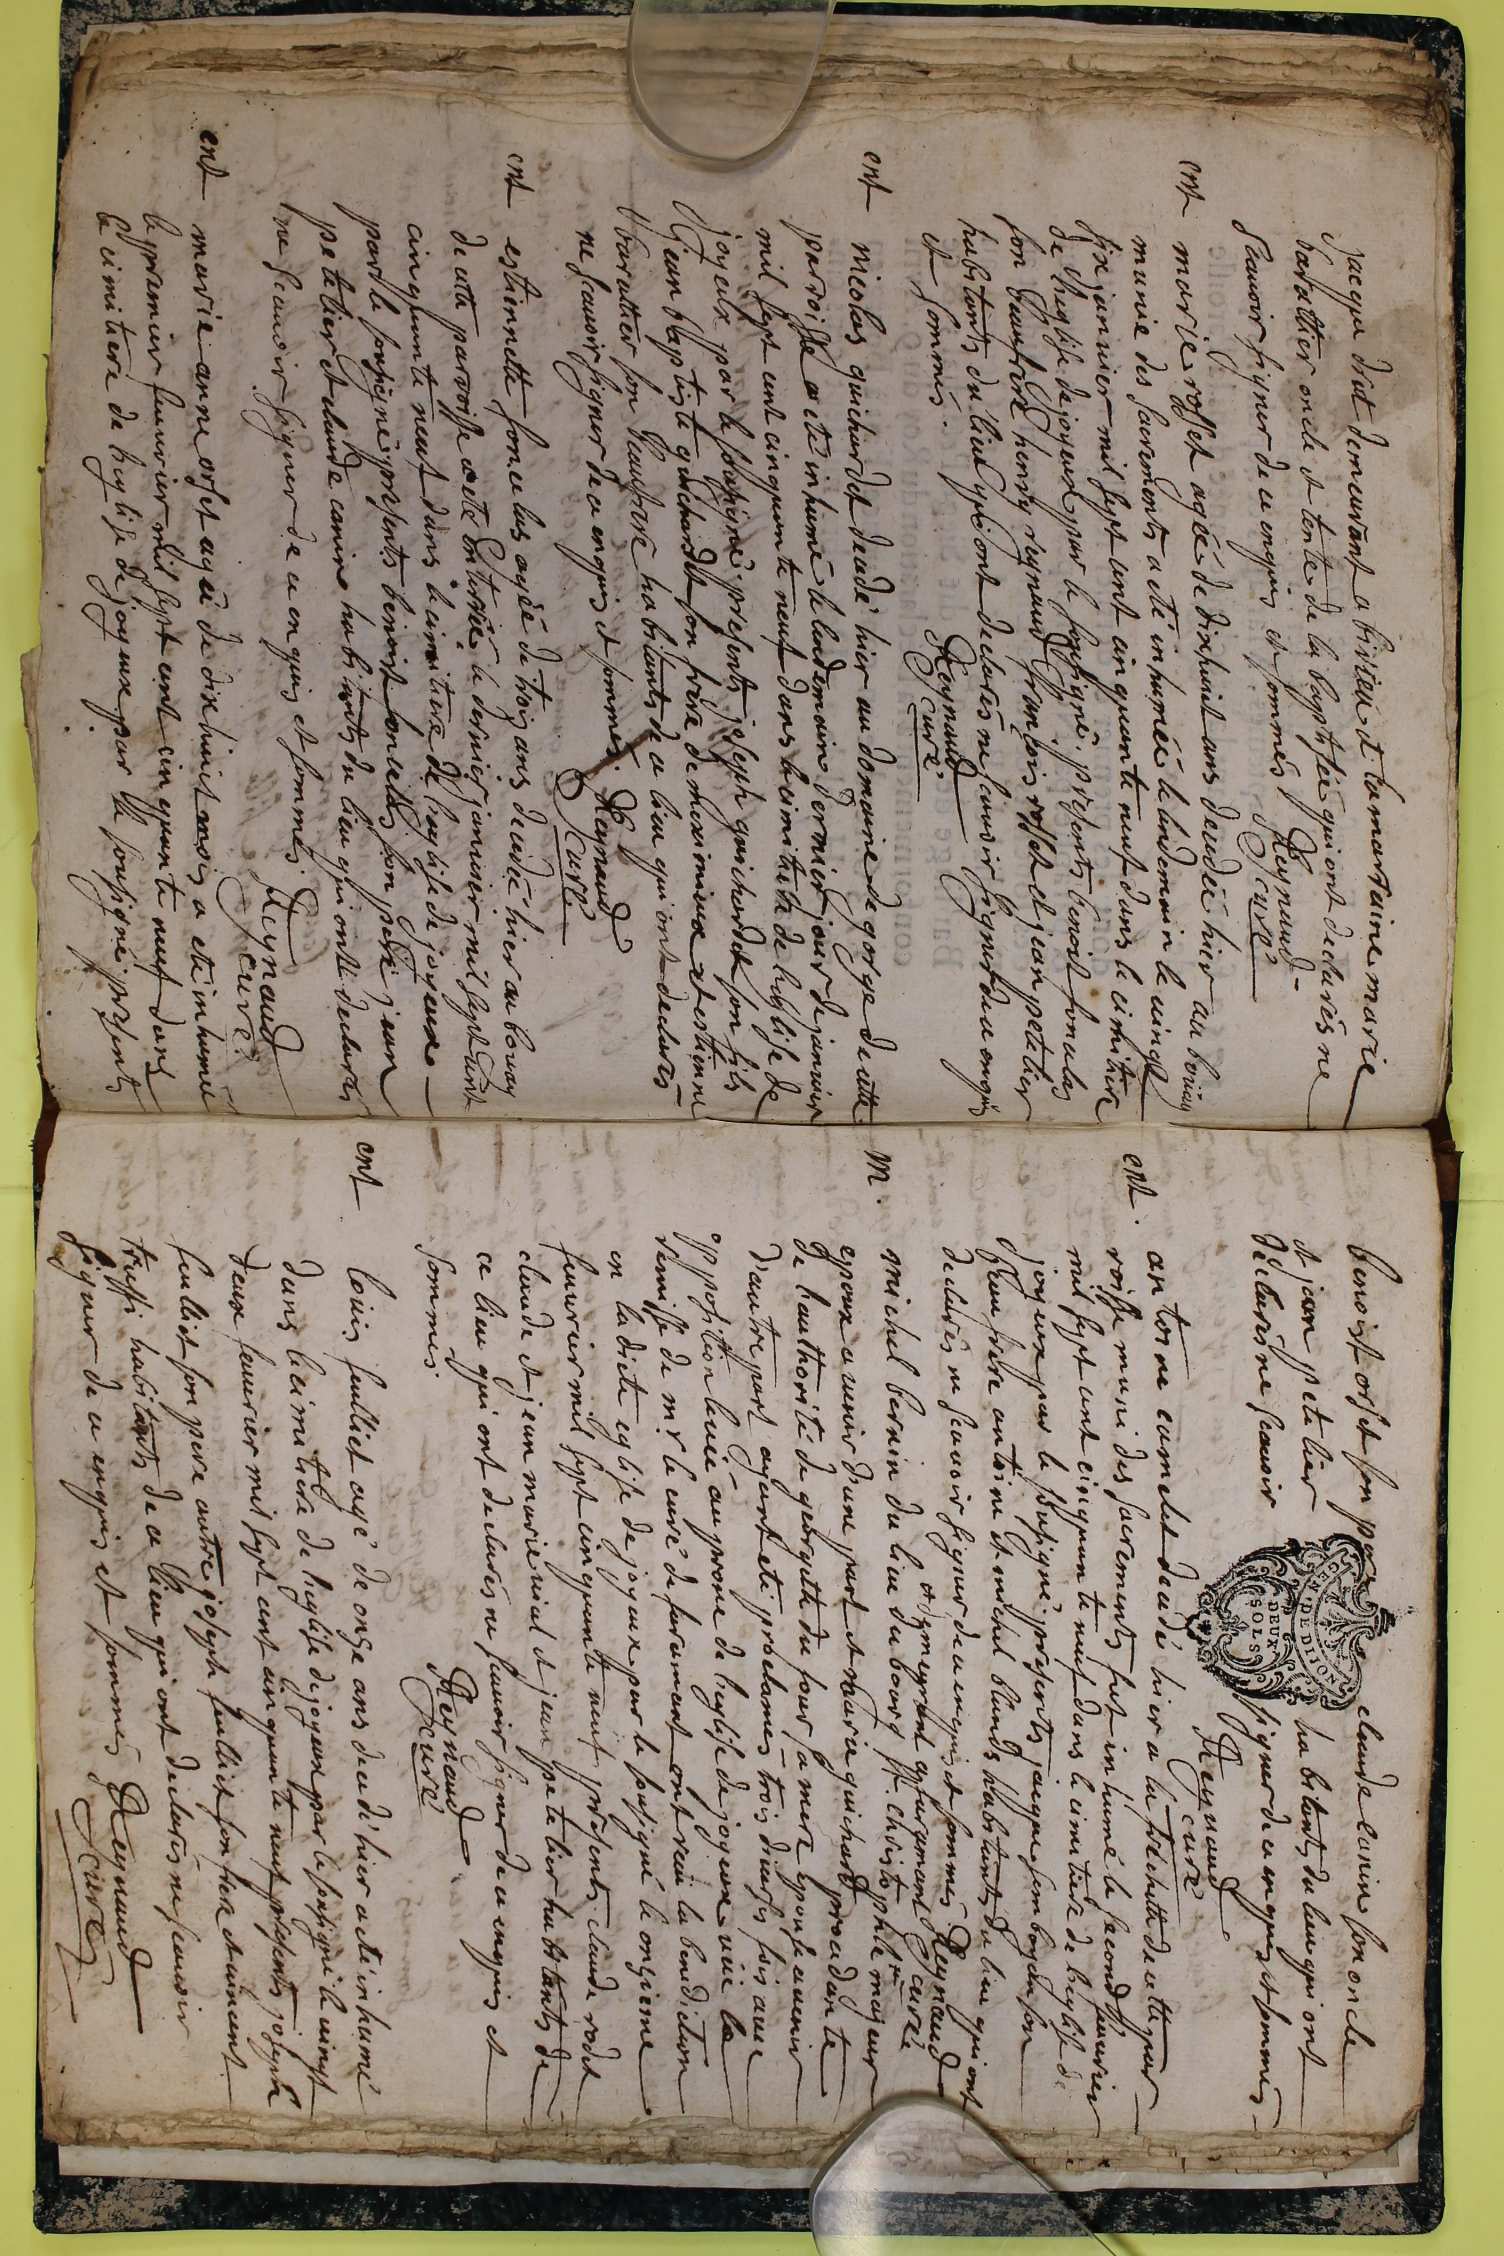 jacque drot demeurant a bisieux et la martaine marie
barattier oncle et tente de la baptisée qui ont declarés ne
scauoir signer de ce enquis et sommés Reynaud
curé
ent marie rosset agée de dixhuit ans decedée hier au bouay
munie des sacrements a eté inhumée le lendemain le uingt
six januier mil sept cent cinquante neuf dans le cimitiere
de l'heglise de joyeux par le sousigné. presents benoit fonculas
son beaufrere henry reynaud françois rosset et jean petetier
habitants du lieu qui ont declarés ne scauoir signer de ce enquis
et sommés. Reynaud
curé
ent nicolas guichardet decedé hier au domaine de gorge de cette
parroisse a eté inhumé le lendemain dernier jour de januier
mil sept cent cinquante neuf dans le cimitiere de l'heglise de
joyeux par le sousigné. presents joseph guichardet son fils
jean baptiste guichardet son frere de meximieux et estienne
barattier son beaufrere habitants de ce lieu qui ont declarés
ne scauoir signer de ce enquis et sommés. Reynaud
curé
ent estiennette fonculas agée de trois ans decedée hier au bouay
de cette parroisse a eté enterrée le dernier januier mil sept cent
cinquante neuf dans le cimitiere de l'heglise de joyeux
par le sousigné. presents benoist fonculas son pere jean
petetier et claude canin habitants du lieu qui ont declarés
ne scauoir signer de ce enquis et sommés. Reynaud
curé
ent marie anne orset agée de dixhuit mois a eté inhumée
le premier feuurier mil sept cent cinquante neuf dans
le cimitiere de l'heglise de joyeux par le sousigné. presents
benoist orset son pere claude canin son oncle
et jean petetier habitants du lieu qui ont
declarés ne scauoir signer de ce enquis et sommés
Reynaud
curé
GEN. DE DIJON
DEUX
SOLS
ent. antoine camelet decedé hier a la de cette par
roisse muni des sacrements fut inhumé le second feuurier
mil sept cent cinquante neuf dans le cimitiere de l'heglise de
joyeux par le sousigné. presents jacque son
beaufrere antoine et michel blanda habitants du lieu qui ont
declarés ne scauoir signer de ce enquis et sommés. Reynaud
curé
m. michel bernin du lieu du bourg st. christophle majeur
epoux a uenir d'une part et marie guichard procedante
de l'authorité de georgette du four sa mere epouse a uenir
d'autre part ayant eté proclamés trois diuerses fois sans
opposition leuée au prone de l'heglise de joyeux uüe la
remisse de mr le curé de ont reçu la benediction
en ladicte eglise de joyeux par le sousigné le onzieme
feuurier mil sept cinquante neuf presents claude rodet
claude et jean marie uial et jean petetier habitants de
ce lieu qui ont declarés ne scauoir signer de ce enquis et
sommés Reynaud
curé
ent louis feulliet agé de onze ans decedé hier a eté inhumé
dans le cimitiere de l'heglise de joyeux par le sousigné le uingt
deux feurier mil sept cent cinquante neuf presents joseph
feulliet son pere autre joseph feulliet son frere et uincent
truffi habitants de ce lieu qui ont declarés ne scauoir
signer de ce enquis et sommés Reynaud
curé